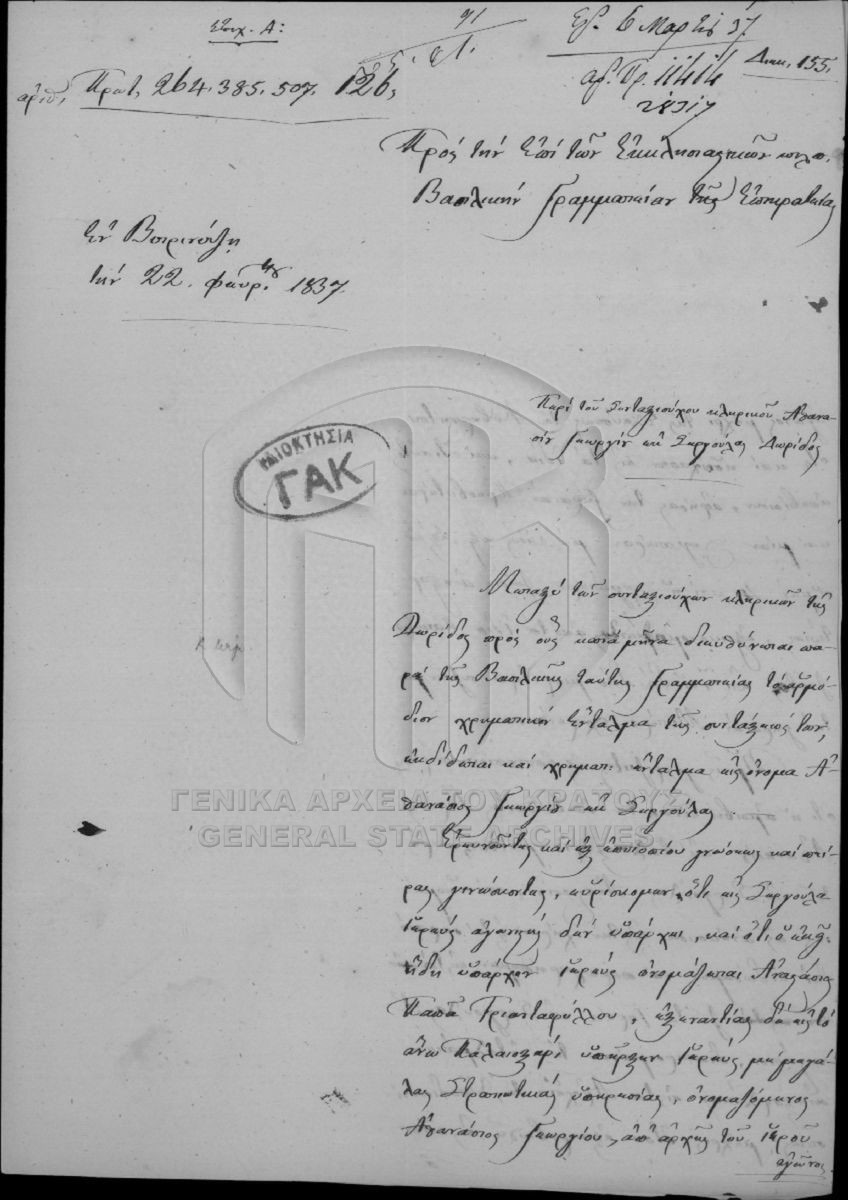 Στοιχ. Α:
ἀριθ. Πρωτ. 264. 385. 507. 126,
91
Ἐλ. 6 Μαρτίου 37.
ἀρ. Πρ. 11414
28317
Δικ. 155.
Πρὸς τὴν ἐπὶ τῶν Ἐκκλησιαστικῶν κτλπ.
Βασιλικὴν Γραμματείαν τῆς Ἐπικρατείας
Ἐν Βιτρινίτζῃ
τὴν 22. φευρ. 1837.
Περὶ τοῦ Συνταξιούχου κληρικοῦ Ἀθανα-
σίου Γεωργίου ἐκ Σεργούλας Δωρίδος
ΙΔΙΟΚΤΗΣΙΑ
ΓΑΚ
Μεταξὺ τῶν συνταξιούχων κληρικῶν τῆς
Δωρίδος πρὸς οὓς κατὰ μῆνα διευθύνεται πα-
ρὰ τῆς Βασιλικῆς ταύτης Γραμματείας τὸ ἁρμό-
διον χρηματικὸν ἔνταλμα τῆς συντάξεώς των,
ἐκδίδεται καὶ χρηματ: ἔνταλμα εἰς ὄνομα Ἀ-
θανασίου Γεωργίου ἐκ Σεργούλας.
ΓΕΝΙΚΑ ΑΡΧΕΙΑ ΤΟΥ ΚΡΑΤΟΥΣ
GENERAL STATE ARCHIVES
Ἐρευνῶντες καὶ ἐξ γνώσεως καὶ πεί-
ρας γινώσκοντες, εὑρίσκομεν ὅτι εἰς Σεργούλα
ἱερεὺς ἀγωνιστὴς δὲν ὑπάρχει, καὶ ὅτι ὁ ἐκεῖ
ἤδη ὑπάρχων ἱερεὺς ὀνομάζεται
Παπᾶ Τριανταφύλλου, ἐξεναντίας δὲ εἰς τὸ
ἄνω Παλαιοξάρι ὑπῆρξεν ἱερεὺς, μὲ μεγά-
λας Στρατιωτικὰς ὑπηρεσίας, ὀνομαζόμενος
Ἀθανάσιος Γεωργίου, ἀπ' ἀρχῆς τοῦ ἱεροῦ
ἀγῶνος